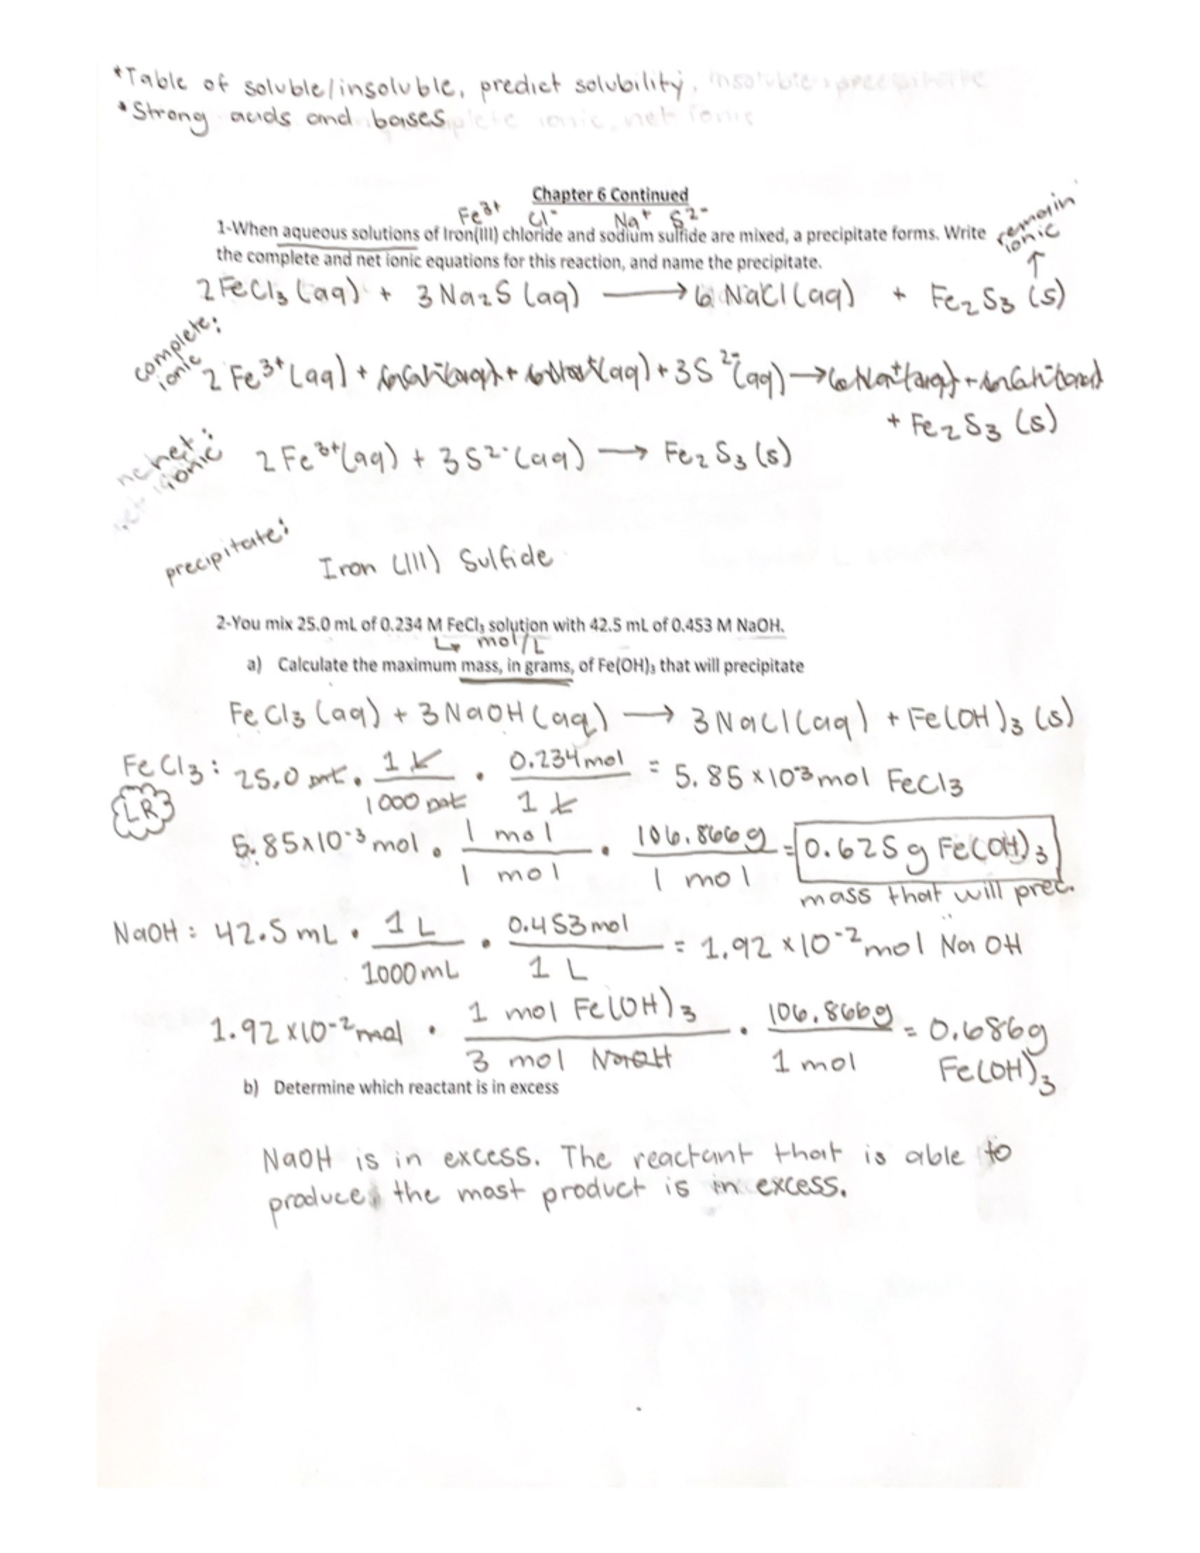 *Table of soluble/insoluble, predict solubility, insoluble : precipitate
*Strong acids and bases
Chapter 6 Continued
Fe³⁺ Cl⁻ Na⁺ S²⁻
1-When aqueous solutions of Iron(III) chloride and sodium sulfide are mixed, a precipitate forms. Write
the complete and net ionic equations for this reaction, and name the precipitate.
remain
ionic
↑
2 FeCl₃ (aq) + 3 Na₂S (aq) ⟶ 6 NaCl (aq) + Fe₂S₃ (s)
complete:
ionic
2 Fe³⁺ (aq) + 6Cl⁻(aq) + 6Na⁺(aq) + 3S²⁻(aq) → 6Na⁺(aq) + 6Cl⁻(aq)
+ Fe₂S₃ (s)
net:
ionic
2 Fe³⁺(aq) + 3S²⁻(aq) ⟶ Fe₂S₃ (s)
precipitate:
Iron (III) Sulfide
2-You mix 25.0 mL of 0.234 M FeCl₃ solution with 42.5 mL of 0.453 M NaOH.
↳ mol/L
a) Calculate the maximum mass, in grams, of Fe(OH)₃ that will precipitate
FeCl₃ (aq) + 3 NaOH (aq) ⟶ 3 NaCl (aq) + Fe(OH)₃ (s)
FeCl₃ : 25.0 mL • 1 L / 1000 mL • 0.234 mol / 1 L = 5.85 x10⁻³ mol FeCl₃
LR
5.85x10⁻³ mol • 1 mol / 1 mol • 106.866 g / 1 mol = 0.625 g Fe(OH)₃
mass that will prec.
NaOH : 42.5 mL • 1 L / 1000 mL • 0.453 mol / 1 L = 1.92 x10⁻² mol NaOH
1.92 x10⁻² mol • 1 mol Fe(OH)₃ / 3 mol NaOH • 106.866g / 1 mol = 0.686g
Fe(OH)₃
b) Determine which reactant is in excess
NaOH is in excess. The reactant that is able to
produce the most product is in excess.